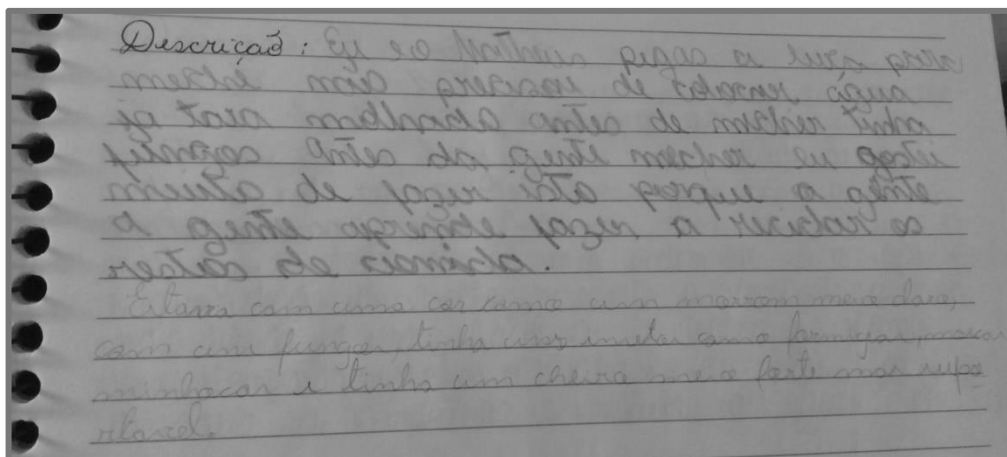 Descricaõ: Eu e o Matheus pegas a luva para
meche não precisou de colocar água
ja tava molhado antes de mecher tinha
fungos antes da gente mecher eu gostei
muito de fazer isto porque a gente
a gente aprende fazer a reciclar os
restos de comida.
Estava com uma cor como um marrom meio claro,
com um fungos, tinha uns insetos como formigas, moscas
minhocas e tinha um cheiro meio forte mas supo
rtavel.